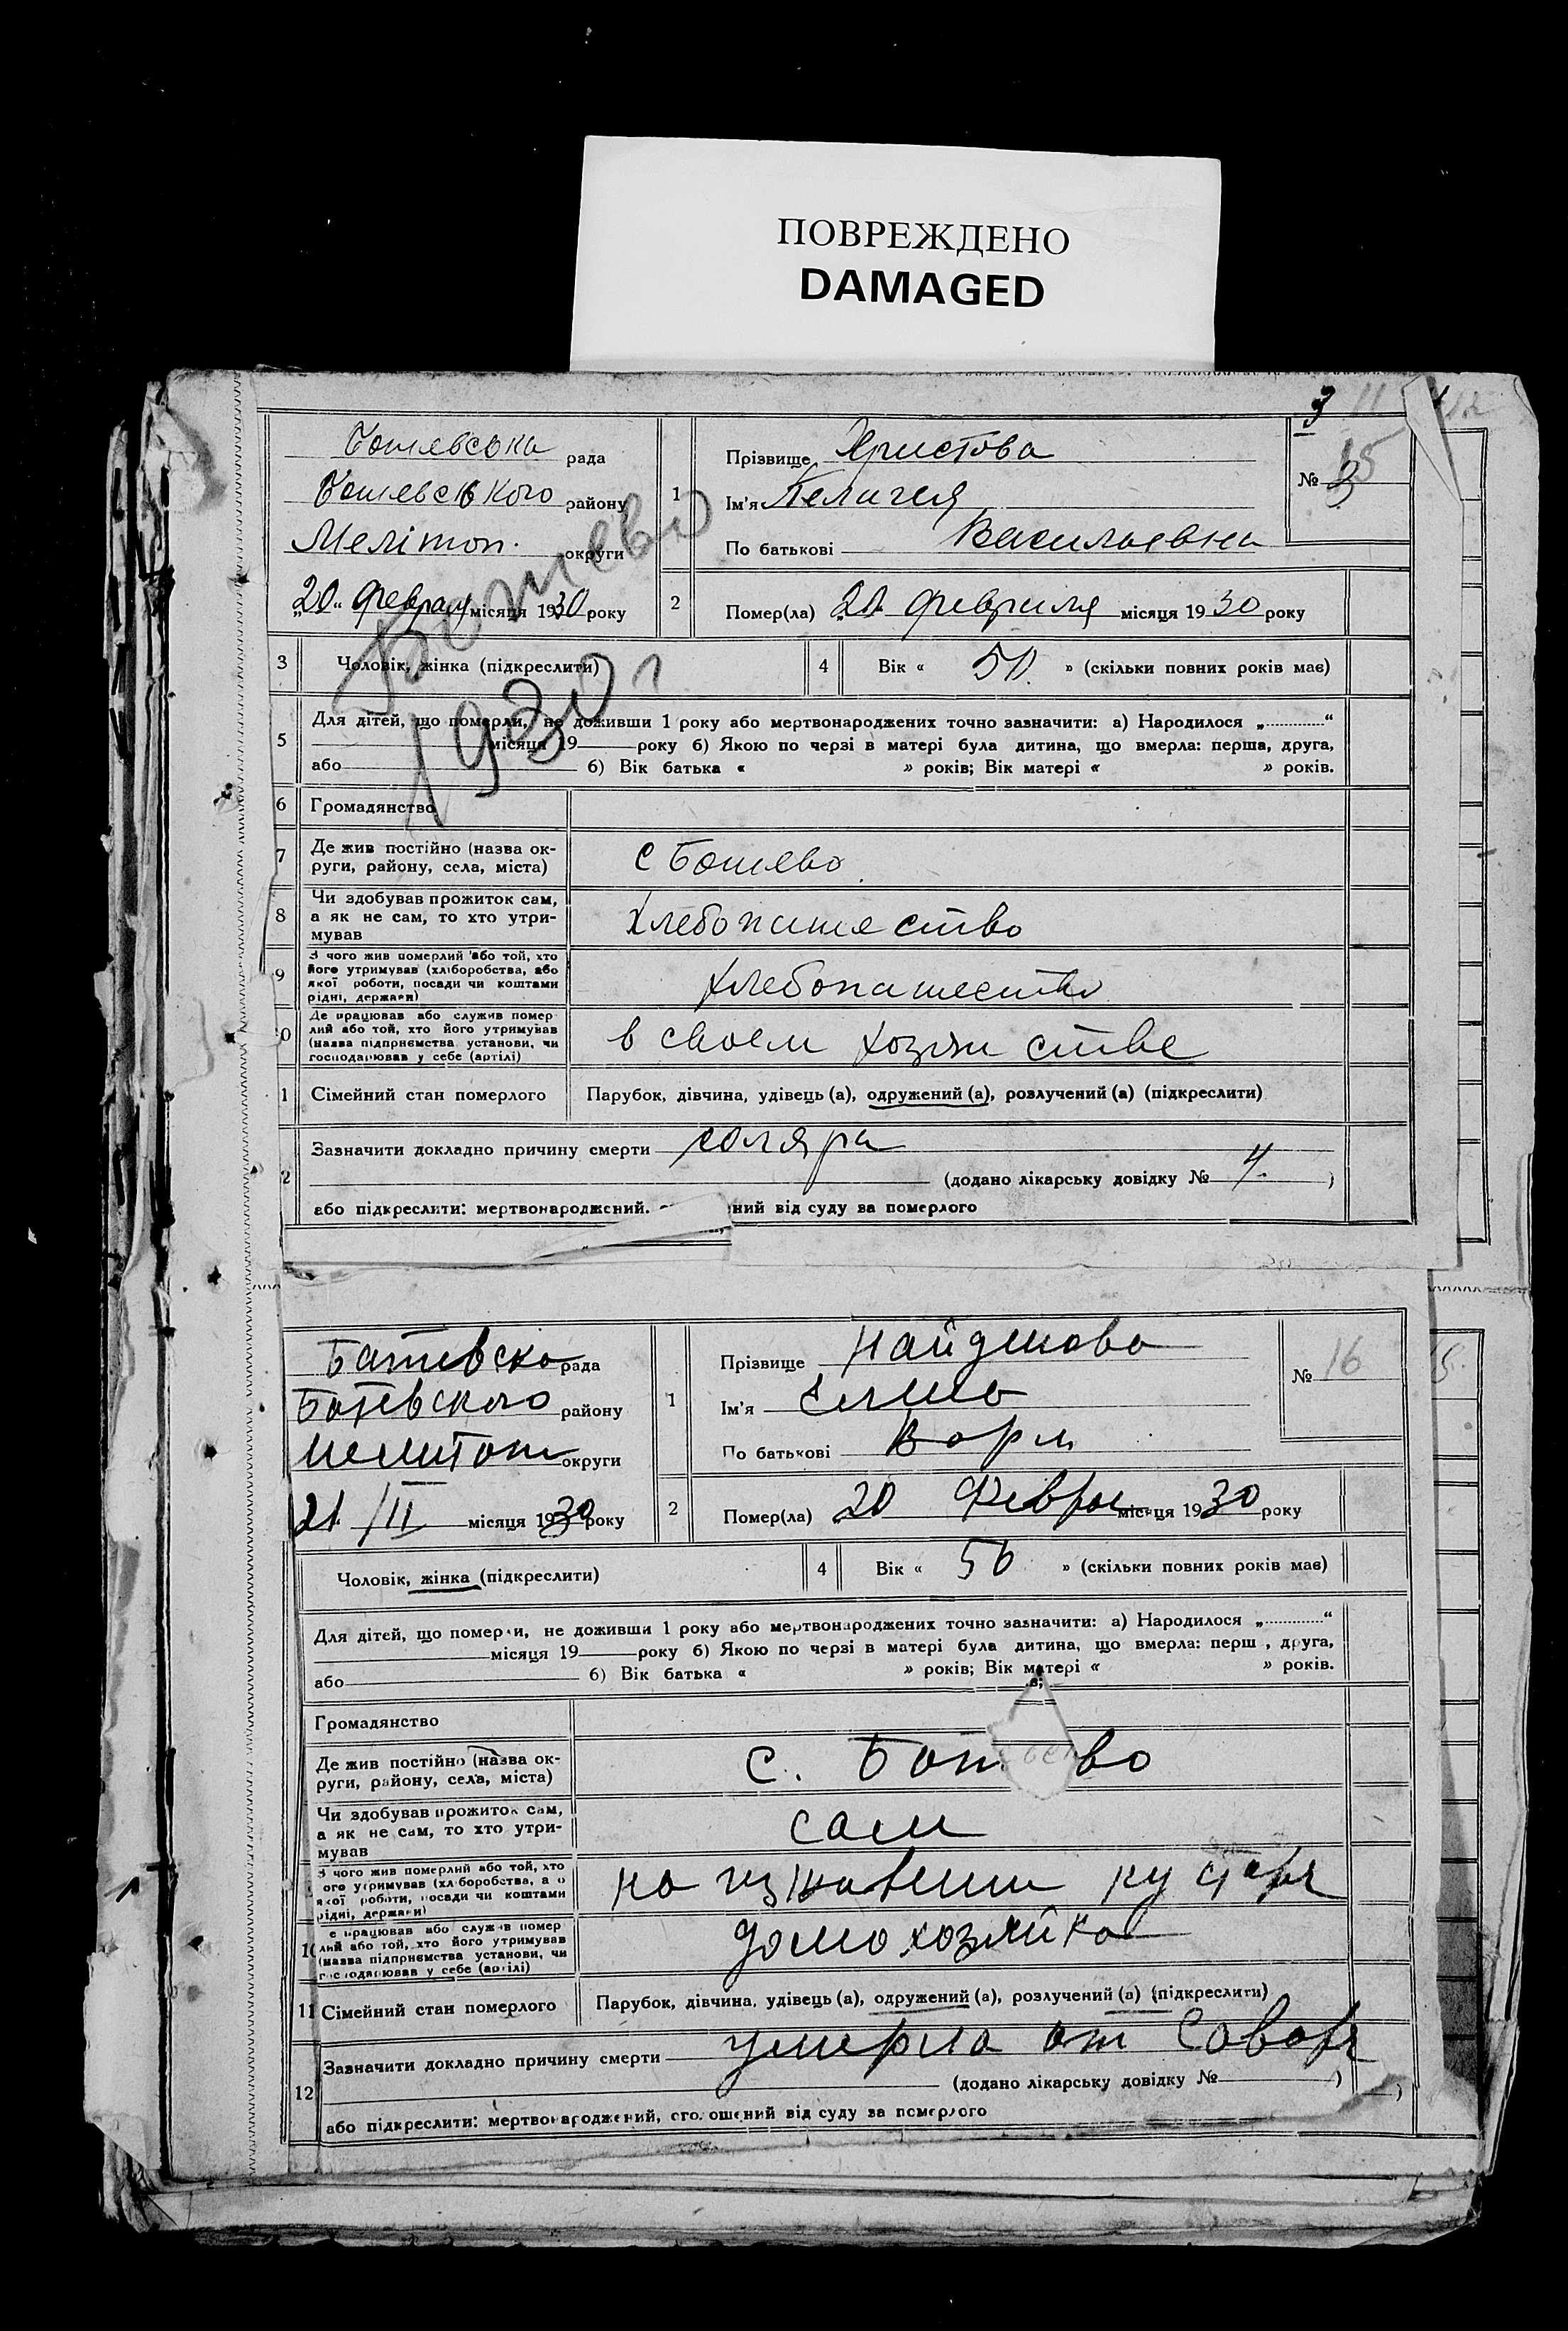 ПОВРЕЖДЕНО
DAMAGED
3 11
Ботевська рада
Ботевського району
Мелітоп. округи
„20“ февраля місяця 1930 року
Ботиево
1930 г
1
Прізвище Христова
Ім'я Пелагея
По батькові Васильевна
№ 15 3
2
Помер(ла) „20 февраля місяця 1930 року
3
Чоловік, жінка (підкреслити)
4
Вік « 50 » (скільки повних років має)
5
Для дітей, що померли, не доживши 1 року або мертвонароджених точно зазначити: а) Народилося „.............“
місяця 19 року б) Якою по черзі в матері була дитина, що вмерла: перша, друга,
або б) Вік батька « » років; Вік матері « » років.
6
Громадянство
7
Де жив постійно (назва ок-
руги, району, села, міста)
с Ботиево
8
Чи здобував прожиток сам,
а як не сам, то хто утри-
мував
хлебопашество
9
З чого жив померлий або той, хто
його утримував (хліборобства, або
якої роботи, посади чи коштами
рідні, держави)
хлебопашество
0
Де працював або служив помер-
лий або той, хто його утримував
(назва підприємства установи, чи
господарював у себе (артілі)
в своем хозяистве
1
Сімейний стан померлого
Парубок, дівчина, удівець (а), одружений (а), розлучений (а) (підкреслити)
2
Зазначити докладно причину смерти
(додано лікарську довідку № 4. )
або підкреслити: мертвонароджений, ений від суду за померлого
рада
району
Мелитоп округи
21 /II місяця 1930 року
1
Прізвище Найденова
Ім'я
По батькові
№ 16
2
Помер(ла) „20 Феврал місяця 1930 року
Чоловік, жінка (підкреслити)
4
Вік « 56 » (скільки повних років має)
Для дітей, що померли, не доживши 1 року або мертвонароджених точно зазначити: а) Народилося „.............“
місяця 19 року б) Якою по черзі в матері була дитина, що вмерла: перш , друга,
або б) Вік батька « » років; Вік матері « » років.
Громадянство
Де жив постійно (назва ок-
руги, району, села, міста)
с. Бот во
Чи здобував прожиток сам,
а як не сам, то хто утри-
мував
сам
З чого жив померлий або той, хто
ого утримував (хліборобства, а о
якої роботи, посади чи коштами
рідні, держави)
на иждивении
10
е працював або служив помер
лий або той, хто його утримував
(назва підприємства установи, чи
господарював у себе (артілі)
домохозяйка
11
Сімейний стан померлого
Парубок, дівчина, удівець (а), одружений (а), розлучений (а) (підкреслити)
12
Зазначити докладно причину смерти умерла от
(додано лікарську довідку № )
або підкреслити: мертвонароджений, оголошений від суду за померлого